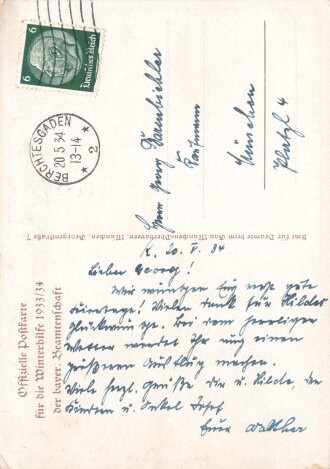 6 6
Deutsches Reich
BERCHTESGADEN
20 5 34
13-14
2
Herrn Georg
Kaufmann
München
Platzl 4
Amt für Beamte beim Gau München-Oberbayern, München, Georgenstraße 7
Offizielle Postkarte
für die Winterhilfe 1933/34
der bayer. Beamtenschaft
K. 20. V. 34
Lieber Georg!
Wir wünschen Euch recht gute
Feiertage! Vielen Dank für Hildes
Glückwünsche. Bei dem herrlichen
Wetter werdet ihr wohl einen
größeren Ausflug machen.
Viele herzl. Grüße dir u. Hilde, den
Kindern u. Onkel Josef
Euer Walther